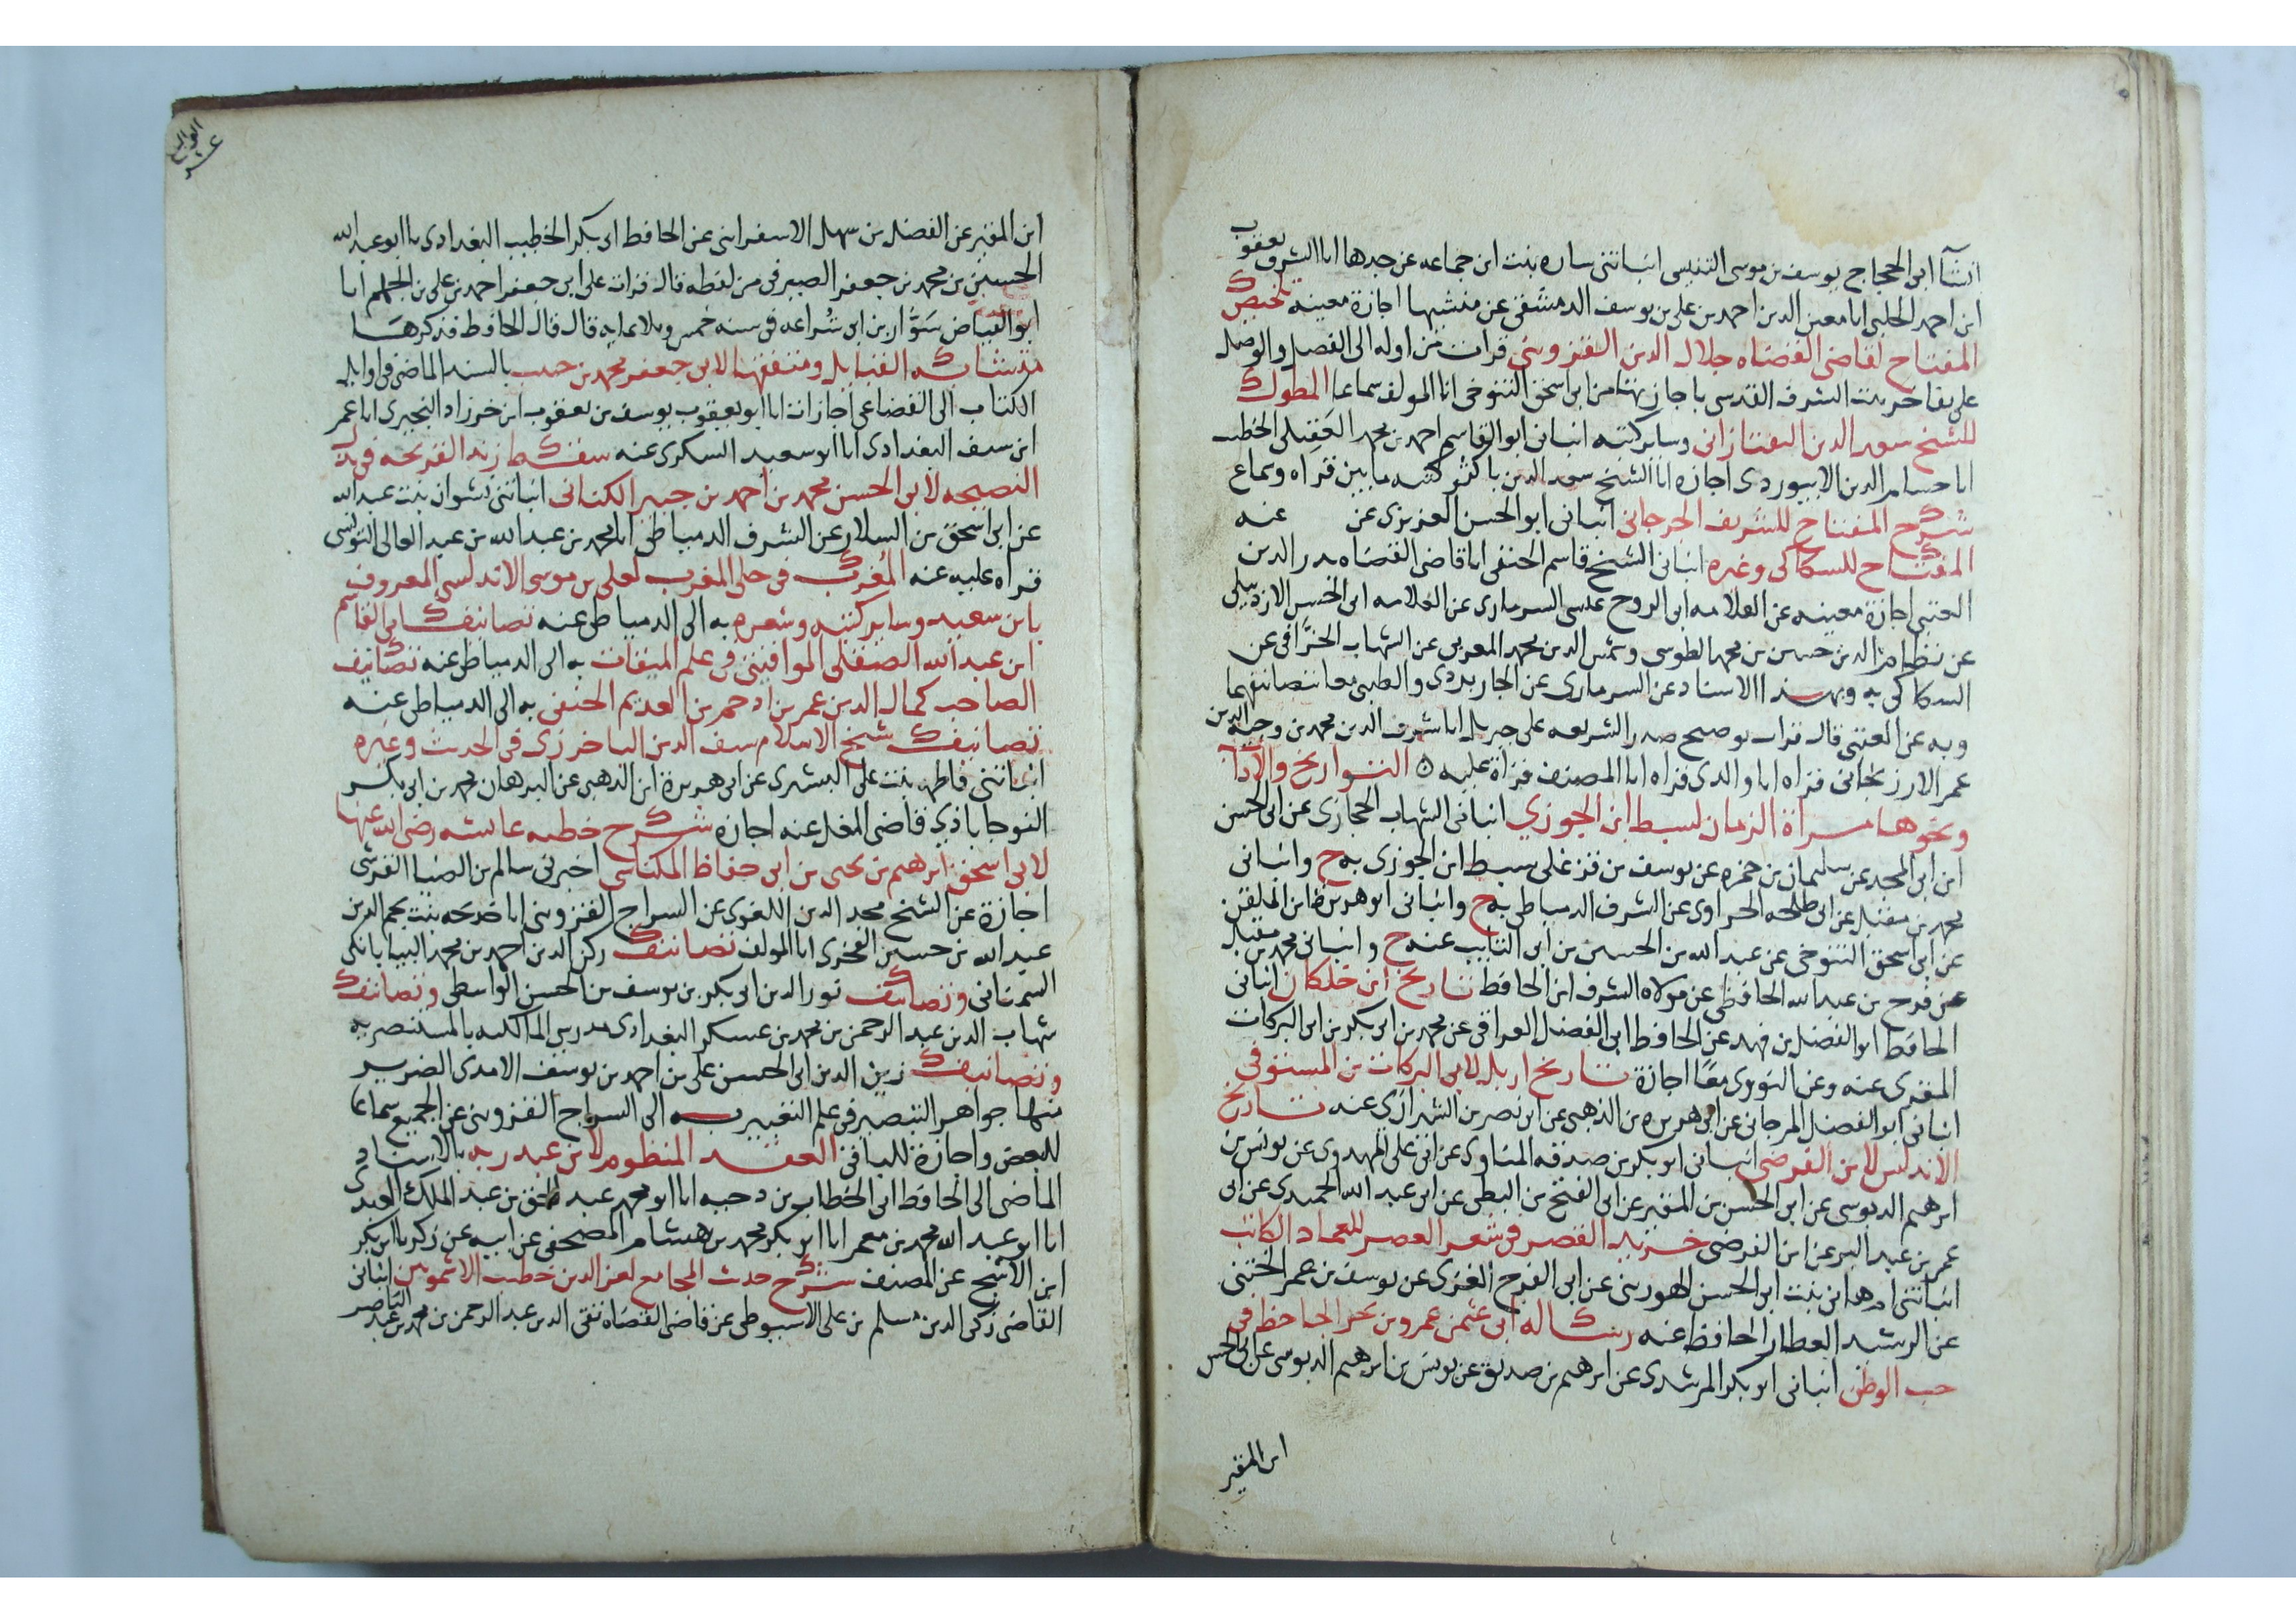 انشا ابى الحجاج يوسف بن موسى التنيسى انباتنى ساره بنت ابن جماعه عن جدها انا الشرف يعقوب
ابن احمد الحلبى انا معين الدين احمد بن على بن يوسف الدمشقى عن منشيها اجازة معينه تلخيص
المفتاح لقاضى القضاه جلال الدين القزوينى قرات من اوله الى الفصل والوصل
على بنت الشرف القدسى باجازتها من ابى اسحق التنوخى انا المولف سماعا المطول
للشيخ سعد الدين التفتازانى وساير كتبه انبانى ابو القاسم احمد بن محمد العقيلى الخطيب
انا حسام الدين الابيوردى اجازه انا الشيخ سعد الدين باكثر كتبه ما بين قراه وسماع
شرح المفتاح للشريف الجرجانى انبانى ابو الحسن العزيزى عن عنه
المفتاح للسكاكى وغيره انبانى الشيخ قاسم الحنفى انا قاضى القضاه بدر الدين
العينى اجازة معينه عن العلامه ابى الروح عيسى السرمارى عن العلامه ابى الحسن الاردبيلى
عن نظام الدين حسين بن محمد الطوسى وشمس الدين محمد المعربى عن الشهاب الخرافى عن
السكاكى به وبهذا الاسناد عن السرمارى عن الجاربردى والطيبى معا تصانيفهما
وبه عن العينى قال قرات توضيح صدر الشريعه على جبريل انا شرف الدين محمد بن وجيه الدين
عمر الارزنجانى قراه انا والدى قراه انا المصنف قراة عليه ۞ التواريخ والاداب
ونحوها مراة الزمان لسبط ابن الجوزي انبانى الشهاب الحجازى عن ابى الحسن
ابن ابى المجد عن سليمان بن حمزه عن يوسف بن قزغلى سبط ابن الجوزى به ح وانبانى
محمد بن مقبل عن ابى طلحه الحراوى عن الشرف الدمياطى به ح وانبانى ابو هريرة ابن الملقن
عن ابى اسحق التنوخى عن عبد الله بن الحسين بن ابى التايب عنه ح وانبانى محمد بن مقبل
عن فرح بن عبد الله الحافظى عن مولاه الشرف ابن الحافظ تاريخ ابن خلكان انبانى
الحافظ ابو الفضل بن فهد عن الحافظ ابى الفضل العراقى عن محمد بن ابى بكر بن ابى البركات
المقرى عنه وعن النووى معًا اجازة تاريخ اربل لابى البركات بن المستوفى
انبانى ابو الفضل المرجانى عن ابى هريره بن الذهبى عن ابى نصر بن الشيرازى عنه تاريخ
الاندلس لابن الفرضى انبانى ابو بكر بن صدقه المناوى عن ابى على المهدوى عن يونس بن
ابرهيم الدبوسى عن ابى الحسن بن المقير عن ابى الفتح بن البطى عن ابى عبد الله الحميدى عن ابى
عمر بن عبد البر عن ابن الفرضى خريده القصر فى شعر العصر للعماد الكاتب
انباتنى ام هانى بنت ابى الحسن الهورينى عن ابى الفرج الغزى عن يوسف بن عمر الختنى
عن الرشيد العطار الحافظ عنه رساله ابى عثمن عمرو بن بحر الجاحظ فى
حب الوطن انبانى ابو بكر المرشدى عن ابرهيم بن صديق عن يونس بن ابرهيم الدبوسى عن ابى الحسن
ابن المقير
الرابع
عشر
ابن المقير عن الفضل بن سهل الاسفراينى عن الحافظ ابى بكر الخطيب البغدادى انا ابو عبد الله
الحسين بن محمد بن جعفر الصيرفى من لفظه قال قرات على ابى جعفر احمد بن على بن الجهم انا
ابو الفياض سوّار بن ابى شُراعه فى سنه خمس وثلاثمايه قال قال الحافظ فذكرها
متشابه القبايل ومتفقها لابى جعفر محمد بن حبيب بالسند الماضى فى اوايل
الكتاب الى القضاعى اجازات انا ابو يعقوب يوسف بن يعقوب ابن خرزاد النجيرى انا عمر
ابن سيف البغدادى انا ابو سعيد السكرى عنه سقط زند القريحه فى بذل
النصيحه لابى الحسن محمد بن احمد بن جبير الكنانى انباتنى نشوان بنت عبد الله
عن ابى اسحق بن السلار عن الشرف الدمياطى انا محمد بن عبد الله بن عبد العالى التونسى
قراه عليه عنه المُغرب فى حلى المغرب لعلى بن موسى الاندلسى المعروف
بابن سعيد وساير كتبه وشعره به الى الدمياطى عنه تصانيف ابى القاسم
ابن عبد الله الصقلى المواقيتى فى علم الميقات به الى الدمياطى عنه تصانيف
الصاحب كمال الدين عمر بن احمد بن العديم الحنفى به الى الدمياطى عنه
تصانيف شيخ الاسلام سيف الدين الباخرزى فى الحديث وغيره
انباتنى فاطمه بنت على اليسيرى عن ابى هريرة ابن الذهبى عن البرهان محمد بن ابى بكر
النوجاباذى قاضى المغل عنه اجازه شرح خطبه عايشه رضى الله عنها
لابى اسحق ابرهيم بن يحيى بن ابى حفاظ المكناسى اخبرنى سالم بن الضيا القرشى
اجازة عن الشيخ مجد الدين اللغوى عن السراج القزوينى انا خديجه بنت نجم الدين
عبد الله بن حسين الفخرى انا المولف تصانيف ركن الدين احمد بن محمد البيابانكى
السمنانى وتصانيف نور الدين ابى بكر بن يوسف بن الحسن الواسطى وتصانيف
شهاب الدين عبد الرحمن بن محمد بن عسكر البغدادى مدرس المالكيه بالمستنصريه
وتصانيف زين الدين ابى الحسن على بن احمد بن يوسف الامدى الضرير
منها جواهر التبصير فى علم التعبير به الى السراج القزوينى عن الجميع سماعا
للبعض واجازة للباقى العقد المنظوم لابن عبد ربه بالاسناد
الماضى الى الحافظ ابى الخطاب بن دحيه انا ابو محمد عبد الحق بن عبد الملك العبدرى
انا ابو عبد الله محمد بن معمر انا ابو بكر محمد بن هشام المصحفى عن ابيه عن زكريا ابن بكر
ابن الاشج عن المصنف شرح حديث المجامع لعز الدين خطيب الاشمونين انبانى
القاضى زكى الدين مسلم بن على الاسيوطى عن قاضى القضاه تقى الدين عبد الرحمن بن محمد بن عبد الناصر